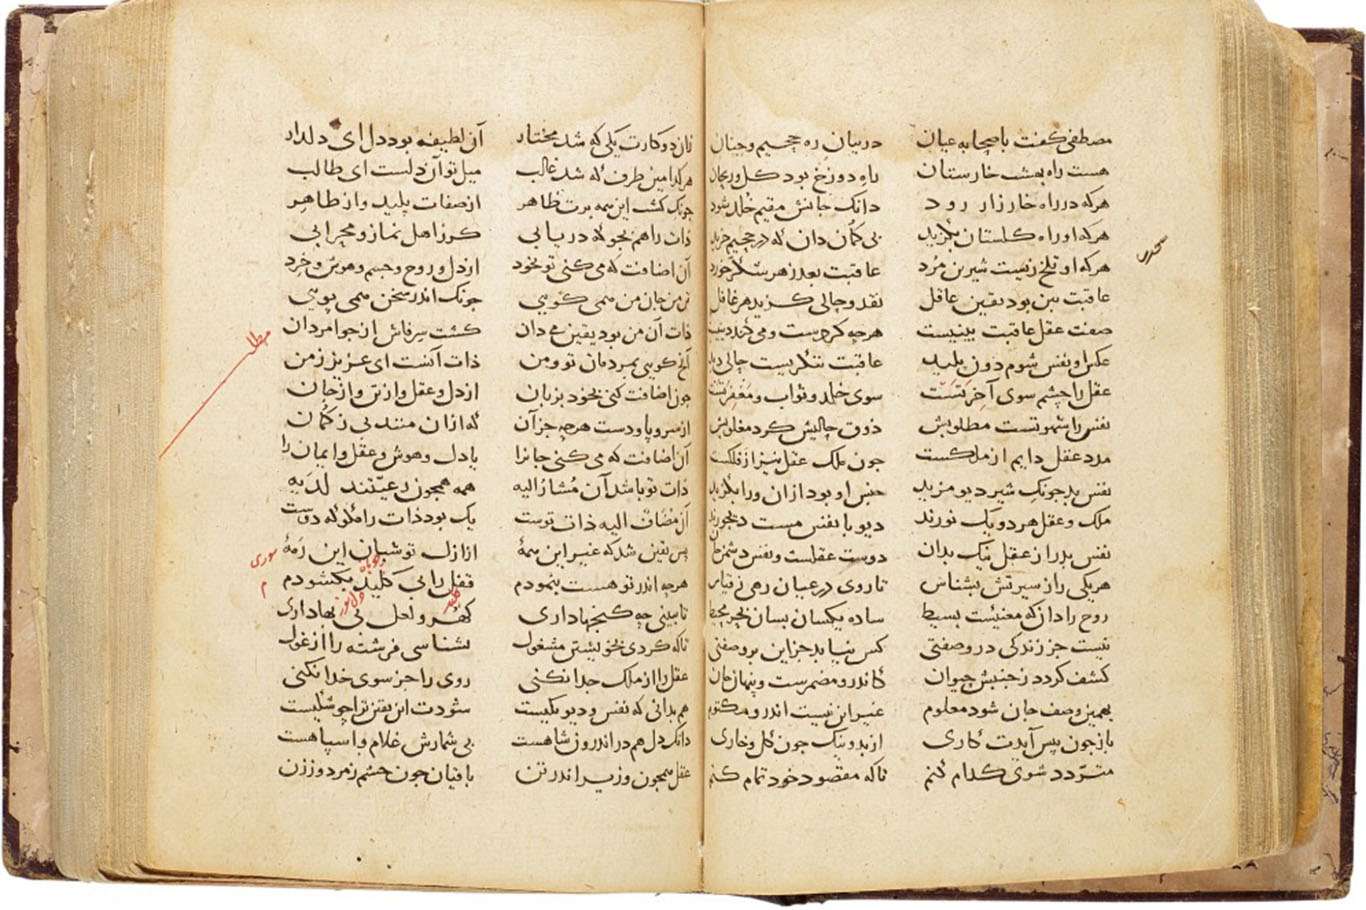 مصطفی گفت با صحابه عیان در بیان ره جحیم و جنان
هست راه بهشت خارستان راه دوزخ بود گل و ریحان
هرکه در راه خارزار رود دانک جانش مقیم خلد شود
هرکه او راه گلستان بگزید بی گمان دان که در جحیم خزید
هرکه او تلخ زیست شیرین مرد عاقبت بعد زهر شکر خورد
عاقبت بین بود یقین عاقل نقد و حالی گزید هر غافل
صفت عقل عاقبت بینیست هرچه کردست و می کند
عکس او نفس شوم دون پلید عاقبت ننگریست حالی دید
عقل را چشم سوی آخرتست سوی خلد و ثواب و مغفرتست
نفس را شهوتست مطلوبش ذوق حالیش کرد مغلوبش
مدد عقل دایم از ملکست چون ملک عقل نیز از فلکست
نفس بد چونک شیر دیو مزید جنس او بود از آن ورا بگزید
ملک و عقل هر دو یک نورند دیو با نفس مست
نفس بد را ز عقل نیک بدان دوست عقلست و نفس دشمن جان
هریکی را ز سیرتش بشناس تا روی در عیان رهی ز قیاس
روح را دان که معنیست بسیط ساده یکسان بسان بحر محیط
نیست جز زندگی درو صفتی کس نیابد جز این برو صفتی
کشف گردد ز جنبش حیوان کاندرو مضمرست و پنهان جان
بهمین وصف جان شود معلوم غیر این نیست اندرو مکتوم
باز چون پیس آیدت کاری از بد و نیک چون گل و خاری
متردد شوی کدام کنم تا که مقصود خود تمام کنم
زان دو کارت یکی که شد مختار آن لطیفه بود دل ای دلدار
هر کدامین طرف که شد غالب میل تو آن دلست ای طالب
چونک کشت این همه برت ظاهر از صفات پلید و از طاهر
ذات را هم بجو که دریابی گر ز اهل نماز و محرابی
آن اضافت که می کنی تو بخود از دل و روح و جسم و هوش و خرد
تن من جان من همی گویی چونک اندر سخن همی پویی
ذات آن من بود یقین می دان گشت سر فاش ای جوامردان
آنچ گویی بمردمان تو و من ذات آنست ای عزیز زمن
چون اضافت کنی بخود بزبان از دل و عقل و از تن و از جان
از سر و پا و دست هرچه جز آن که از آن منند بی ز گمان
آن اضافت که می کنی جانرا با دل و هوش و عقل و ایمان را
ذات تو باشد آن مشار الیه همه همچون رعیتند لدیه
آن مضاف الیه ذات توست یک بود ذات را مگو که دوست
پس یقین شد که غیر این همه از ازل تو شبان این رمه
هرچه اندر تو هست بنمودم قفل را بی کلید بگشودم
تا ببینی چه گنجها داری گهر و لعل بی بها داری
تا که گردی بخویشتن مشغول بشناسی فرشته را از غول
عقل را از ملک جدا نکنی روی را جز سوی خدا نکنی
هم بدانی که نفس و دیو یکیست شودت این یقین ترا چو شکیست
دانک دل هم در اندرون شاهست بی شمارش غلام و اسپاهست
عقل همچون وزیر اندر تن باقیان چون حشم ز مرد و ز زن